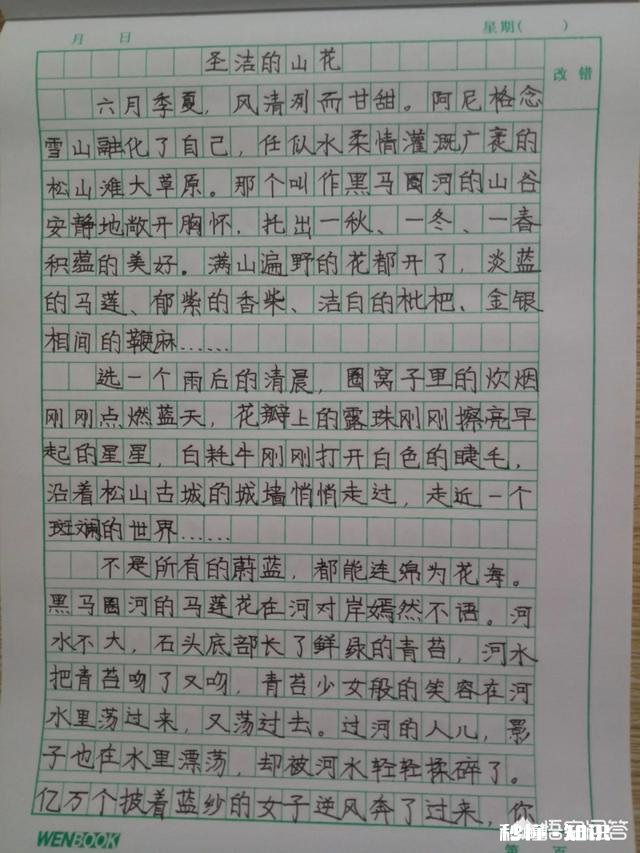 月 日 星期( )
改错
圣洁的山花
六月季夏，风清冽而甘甜。阿尼格念
雪山融化了自己，任似水柔情灌溉广袤的
松山滩大草原。那个叫作黑马圈河的山谷
安静地敞开胸怀，托出一秋、一冬、一春
积蕴的美好。满山遍野的花都开了，淡蓝
的马莲、郁紫的香柴、洁白的枇杷、金银
相间的鞭麻……
选一个雨后的清晨，圈窝子里的炊烟
刚刚点燃蓝天，花瓣上的露珠刚刚擦亮早
起的星星，白牦牛刚刚打开白色的睫毛，
沿着松山古城的城墙悄悄走过，走近一个
斑斓的世界……
不是所有的蔚蓝，都能连绵为花海。
黑马圈河的马莲花在河对岸嫣然不语。河
水不大，石头底部长了鲜绿的青苔，河水
把青苔吻了又吻，青苔少女般的笑容在河
水里荡过来，又荡过去。过河的人儿，影
子也在水里漂荡，却被河水轻轻揉碎了。
亿万个披着蓝纱的女子逆风奔了过来，你
WENBOOK
第 页
悟空问答